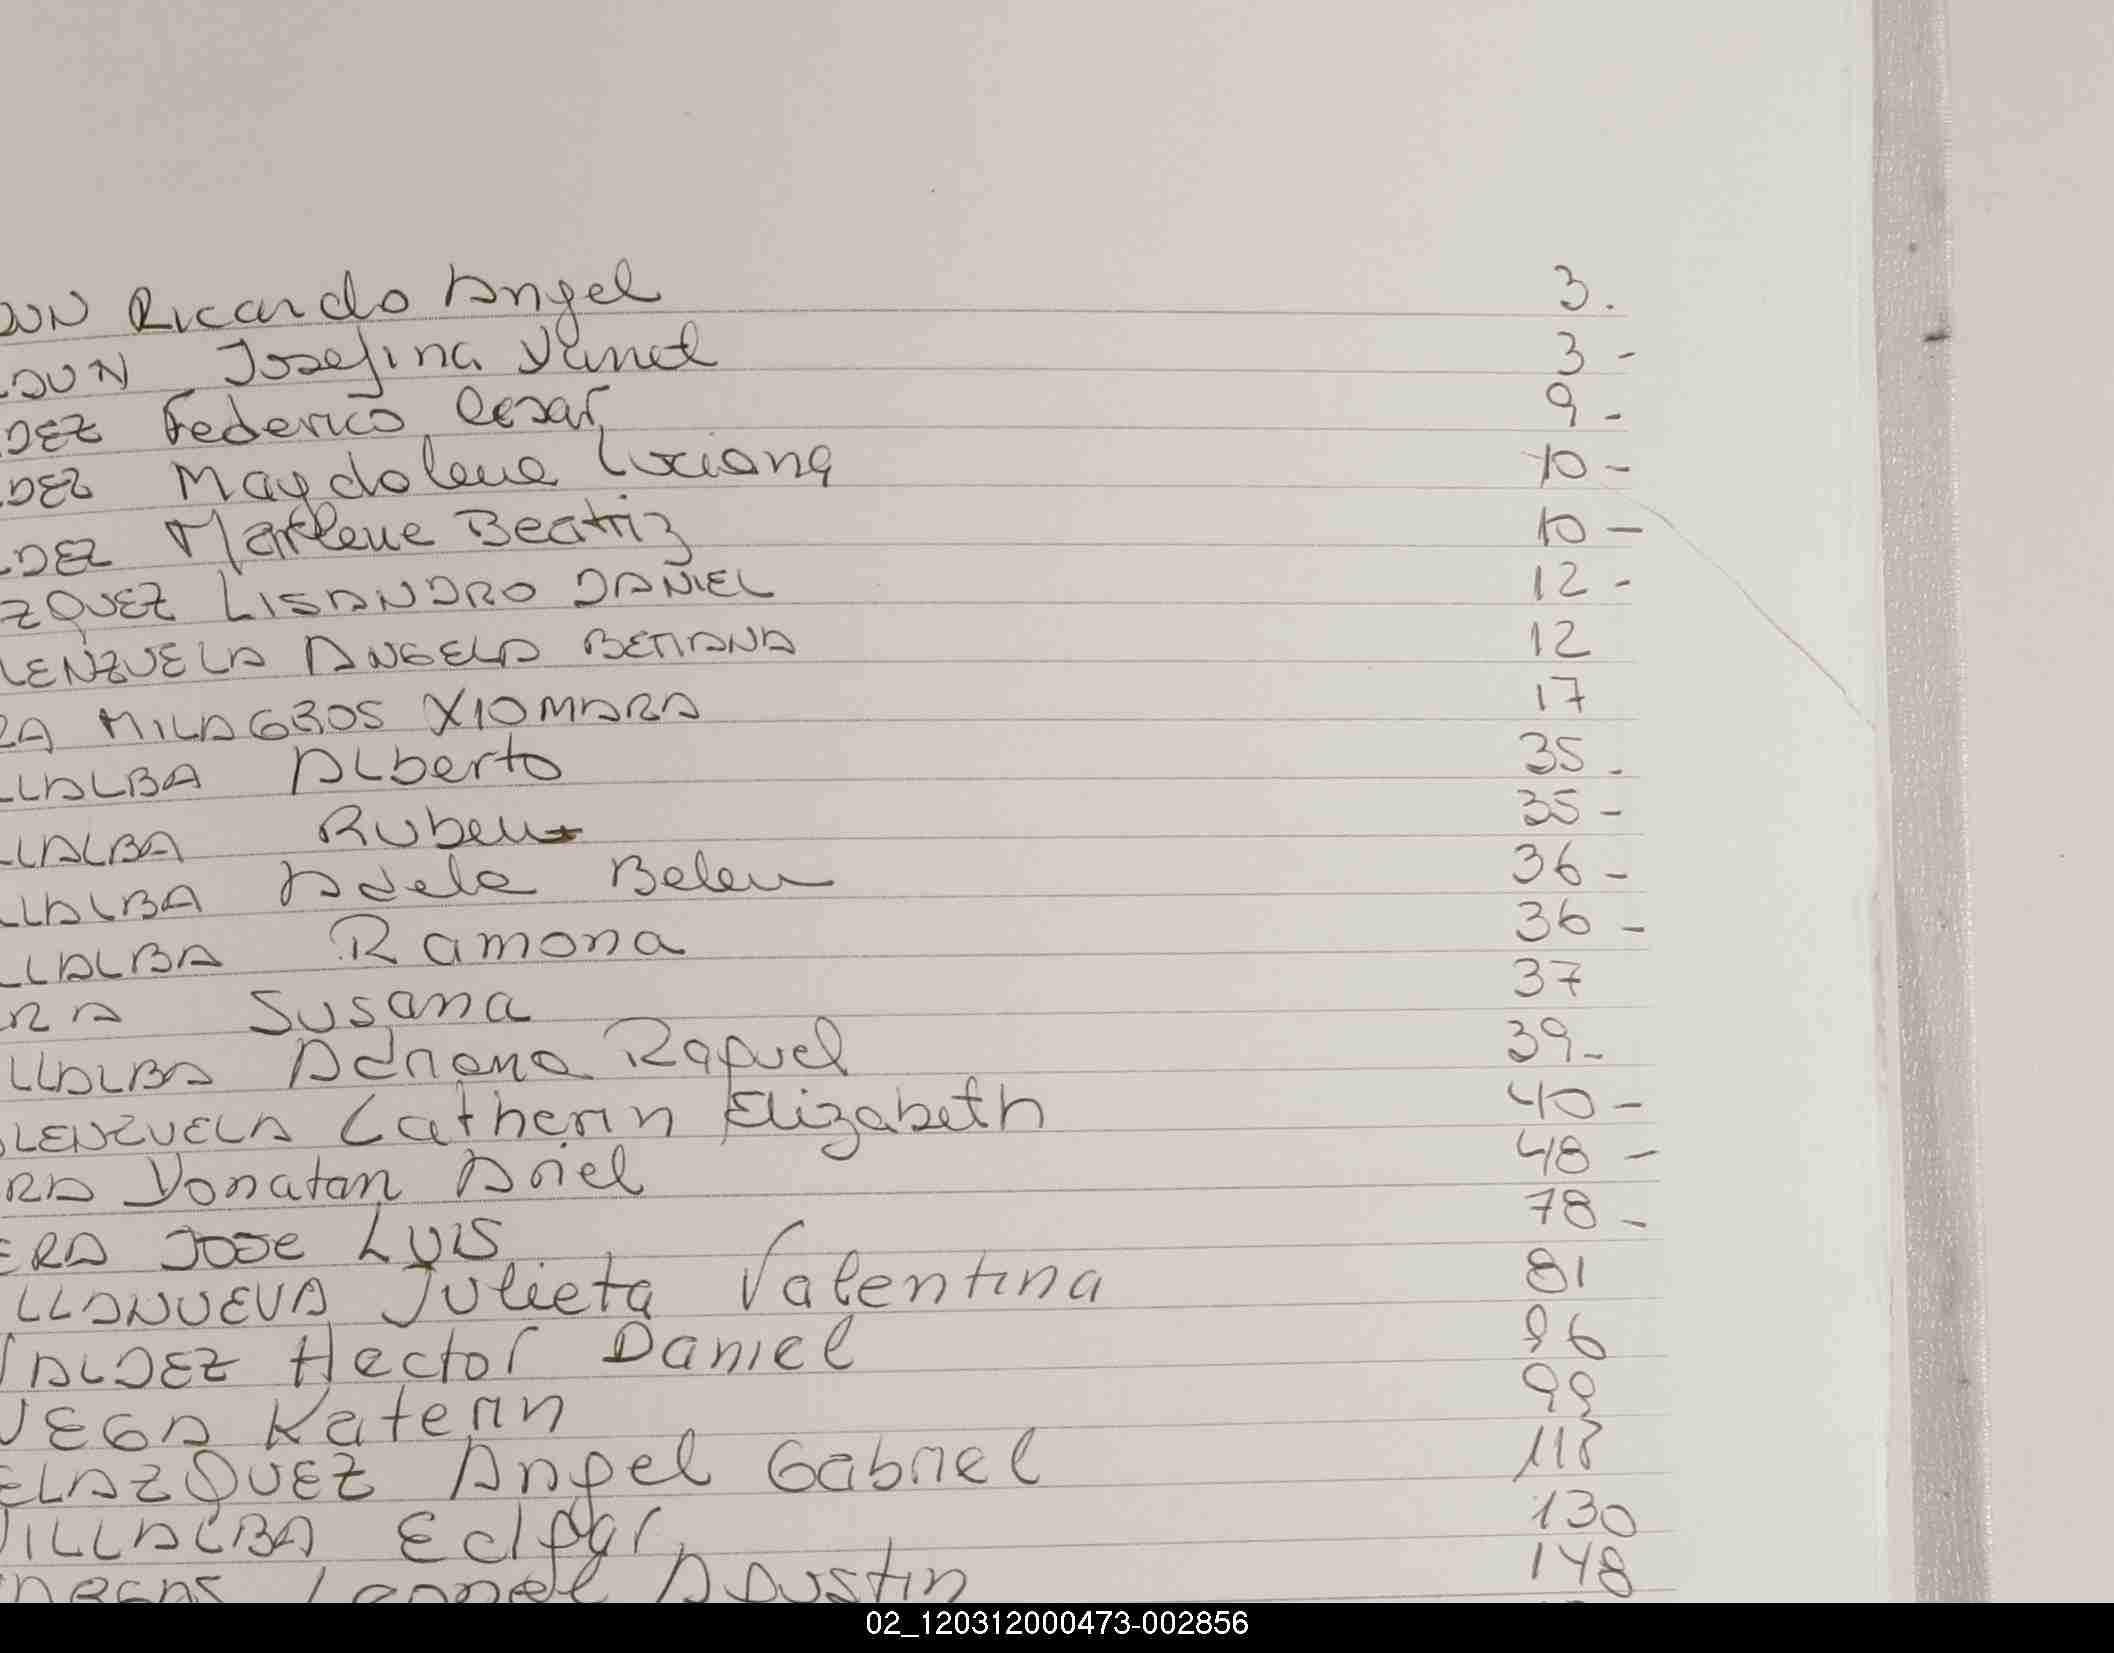 DUN Ricardo Angel 3.
LDUN Josefina Yanet 3 -
DEZ Federico Cesar 9 -
DEZ Magdalena Luciana 10 -
LDEZ Marlene Beatriz 10 -
ZQUEZ LISANDRO DANIEL 12 -
LENZUELA ANGELA BETIANA 12
RA MILAGROS XIOMARA 17
LLALBA Alberto 35 .
LLALBA Ruben 35 -
LLALBA Adela Belen 36 -
LLALBA Ramona 36 -
RA Susana 37
LLALBA Adriana Raquel 39 -
LENZUELA Catherin Elizabeth 40 -
RA Yonatan Ariel 48 -
ERA JOSE LUIS 78 -
LLANUEVA Julieta Valentina 81
VALDEZ Hector Daniel 96
VEGA Katerin 99
ELAZQUEZ Angel Gabriel 118
VILLALBA Edgar 130
Leonel Agustin 148
02_120312000473-002856